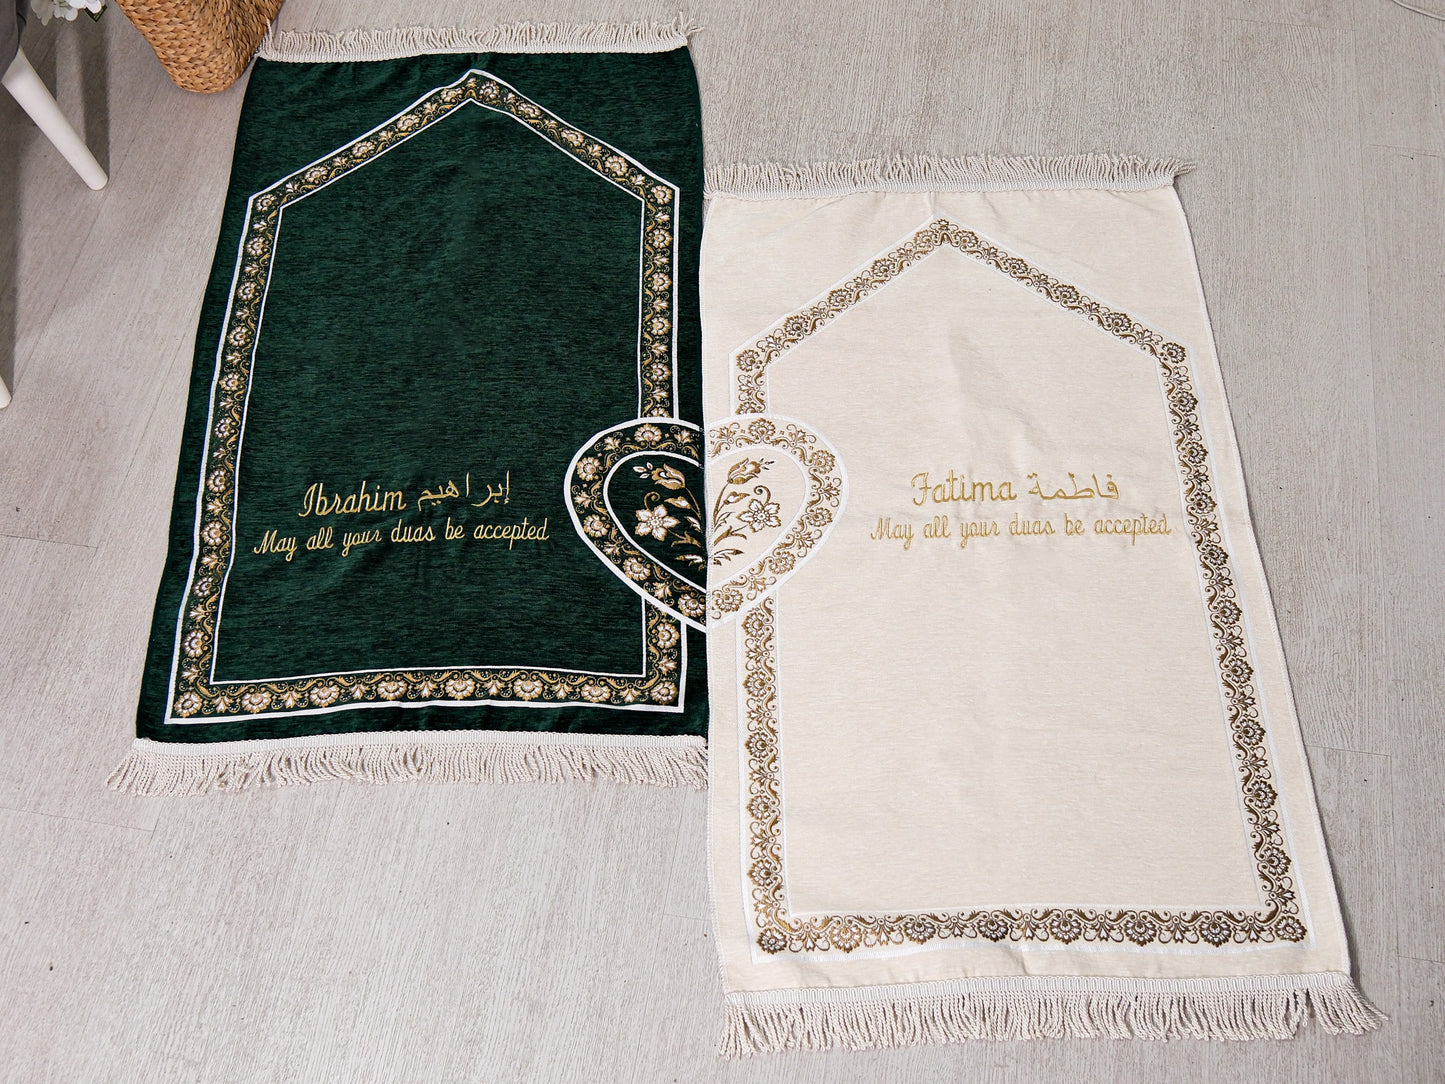 Ibrahim إبراهيم
May all your duas be accepted
Fatima فاطمة
May all your duas be accepted